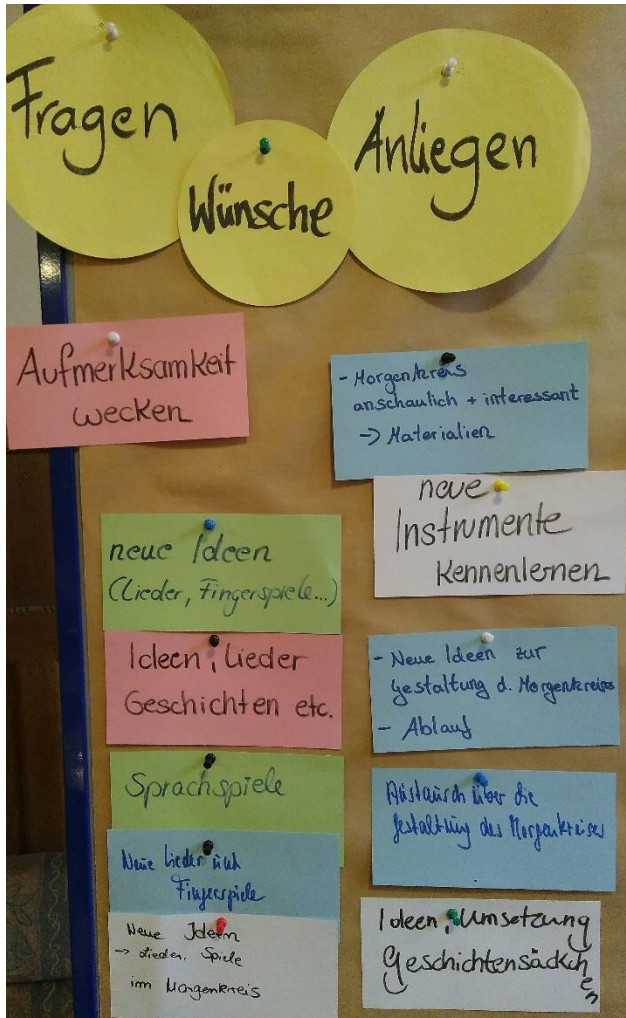 Fragen
Wünsche
Anliegen
Aufmerksamkeit
wecken
neue Ideen
(Lieder, Fingerspiele...)
Ideen, Lieder
Geschichten etc.
Sprachspiele
Neue Lieder und
Fingerspiele
Neue Ideen
→ Lieder, Spiele
im Morgenkreis
- Morgenkreis
anschaulich + interessant
→ Materialien
neue
Instrumente
kennenlernen
- Neue Ideen zur
Gestaltung d. Morgenkreises
- Ablauf
Austausch über die
Gestaltung des Morgenkreises
Ideen, Umsetzung
Geschichtensäckchen